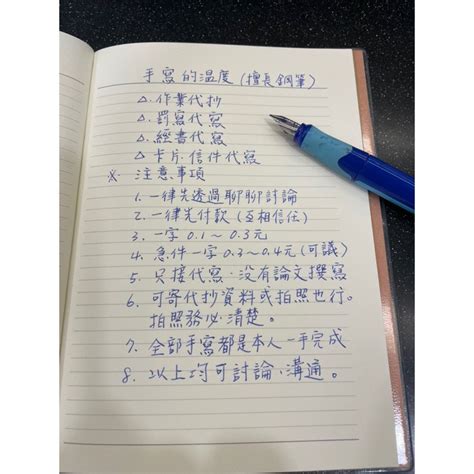 手寫的溫度(擅長鋼筆)
△.作業代抄
△.罰寫代寫
△.經書代寫
△卡片.信件代寫
※.注意事項
1.一律先透過聊聊討論
2.一律先付款(互相信任)
3.一字0.1~0.3元
4.急件一字0.3~0.4元(可議)
5.只接代寫.沒有論文撰寫
6.可寄代抄資料或拍照也行。
拍照務必清楚。
7.全部手寫都是本人一手完成
8.以上均可討論、溝通。